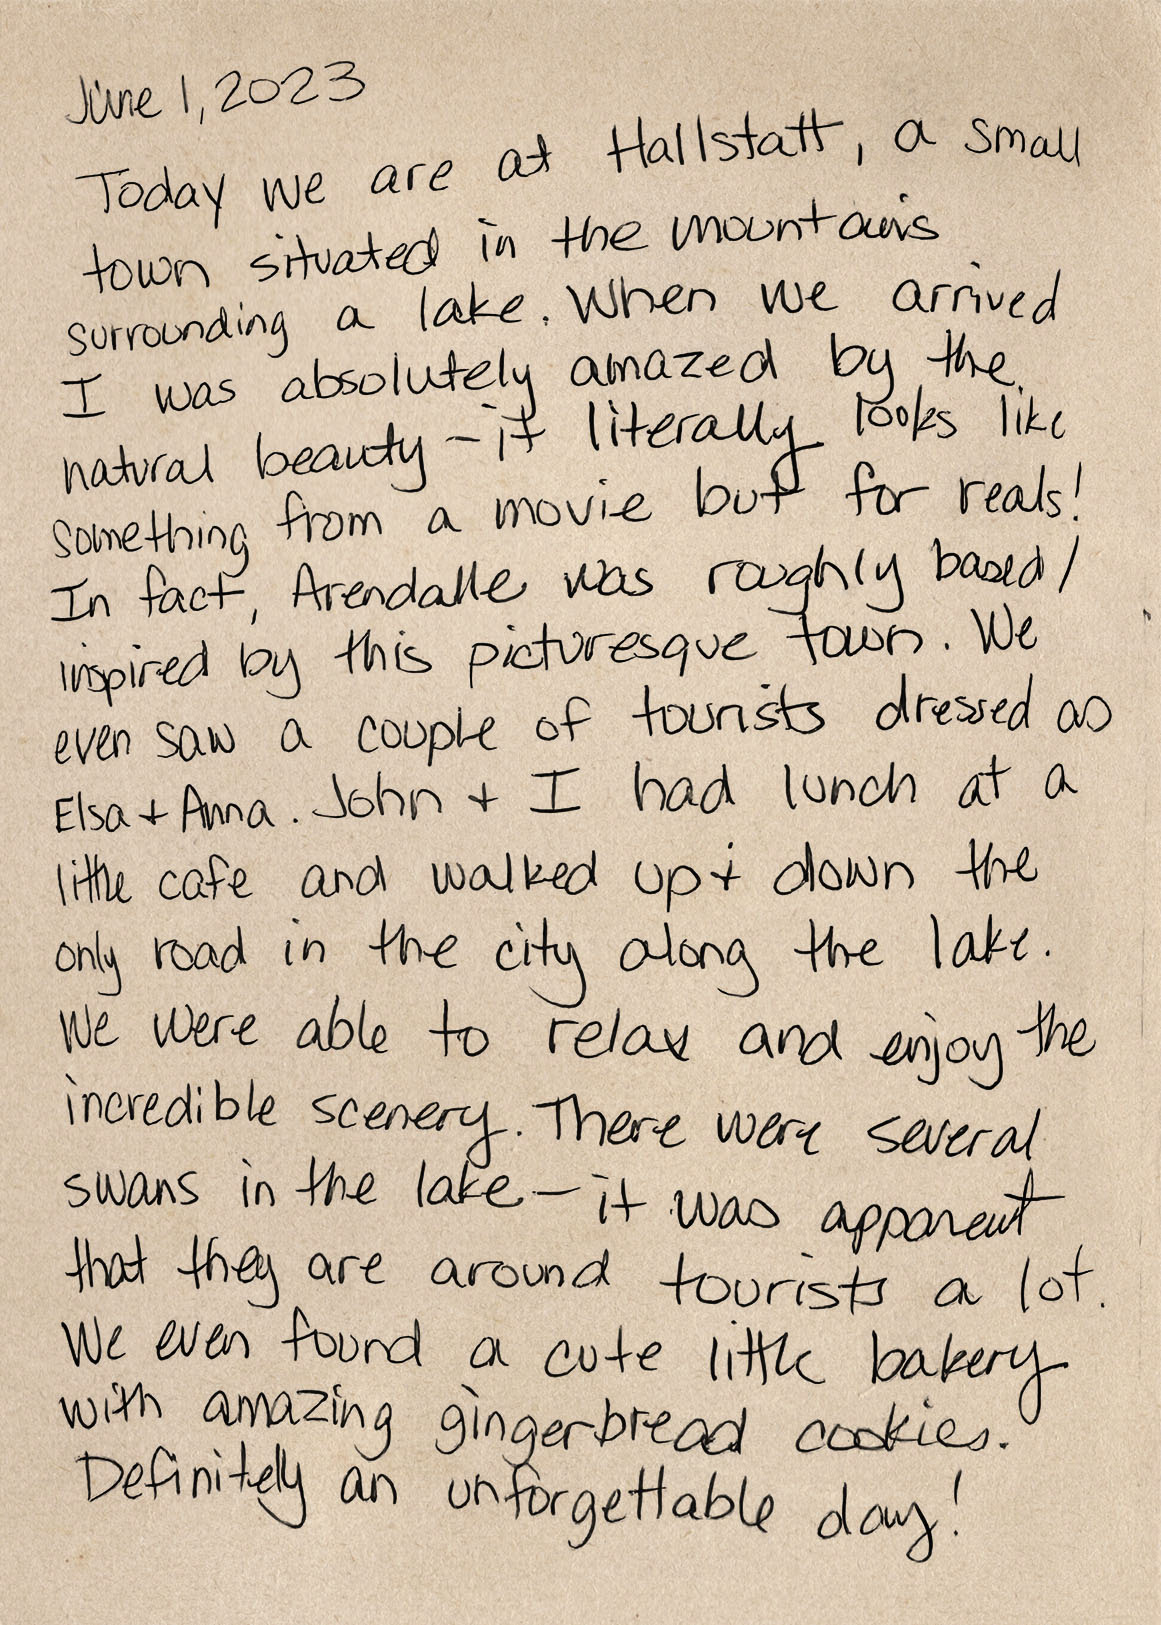 June 1, 2023
Today we are at Hallstatt, a small
town situated in the mountains
surrounding a lake. When we arrived
I was absolutely amazed by the
natural beauty - it literally looks like
something from a movie but for reals!
In fact, Arendalle was roughly based/
inspired by this picturesque town. We
even saw a couple of tourists dressed as
Elsa + Anna. John + I had lunch at a
little cafe and walked up + down the
only road in the city along the lake.
We were able to relax and enjoy the
incredible scenery. There were several
swans in the lake - it was apparent
that they are around tourists a lot.
We even found a cute little bakery
with amazing gingerbread cookies.
Definitely an unforgettable day!